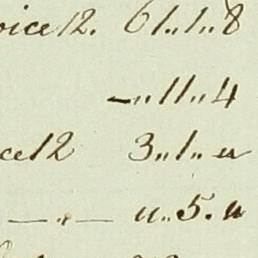 oice 12. 61..1..8
—..11..4
ce 12 3..1..u
u..5.u